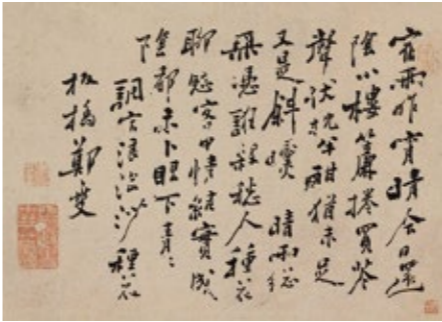 宿雨昨宵晴今日還
陰小樓簾捲買花
聲伏枕半酣猶未足
又是斜曛 晴雨總
無憑誑殺愁人種花
聊慰客中情結實成
陰都未卜眼下青〻
調寄浪淘沙 種花
板橋鄭燮